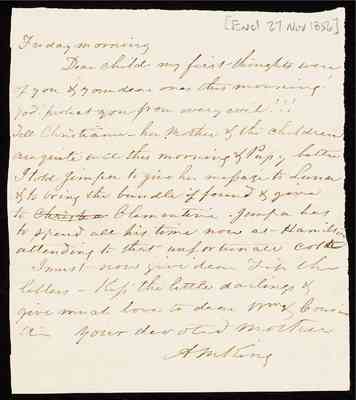 [Encl 27 Nov 1856]
Friday morning
Dear child my first thoughts were
of you & your dear ones this morning
God protect you from every evil!!!
Tell Christiann her Mother & the children
are quite well this morning & Pupy better
I told Jimper to give her message to Lena
& to bring the bundle if found & give
to Clementine Jimper has
to spend all his time now at Hamilton
attending to that unfortunate
I must now give dear Tip the
letters - Kiss the little darlings &
give much love to dear & Cousin
Your devoted mother
A M King